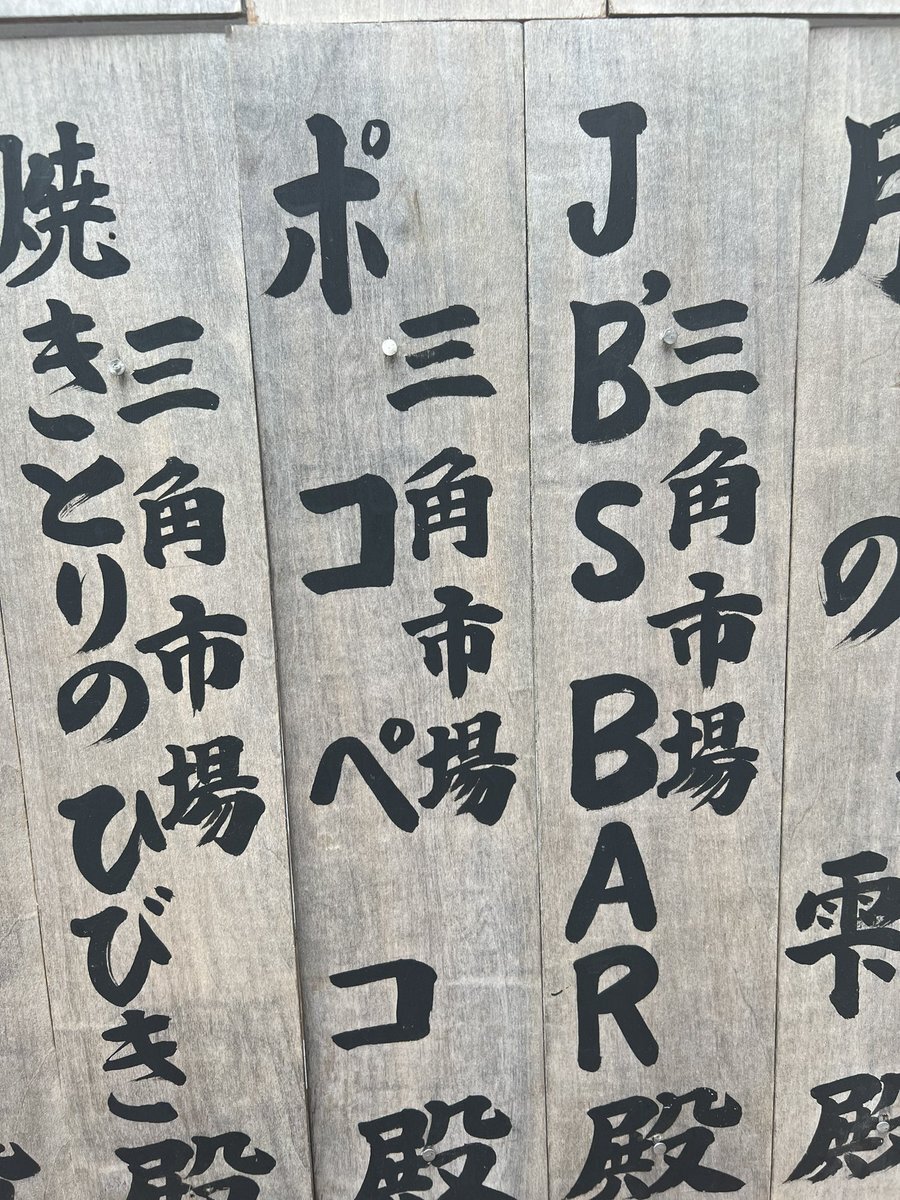 月の雫殿
三角市場
J B'S BAR殿
三角市場
ポコペコ殿
三角市場
焼きとりのひびき殿